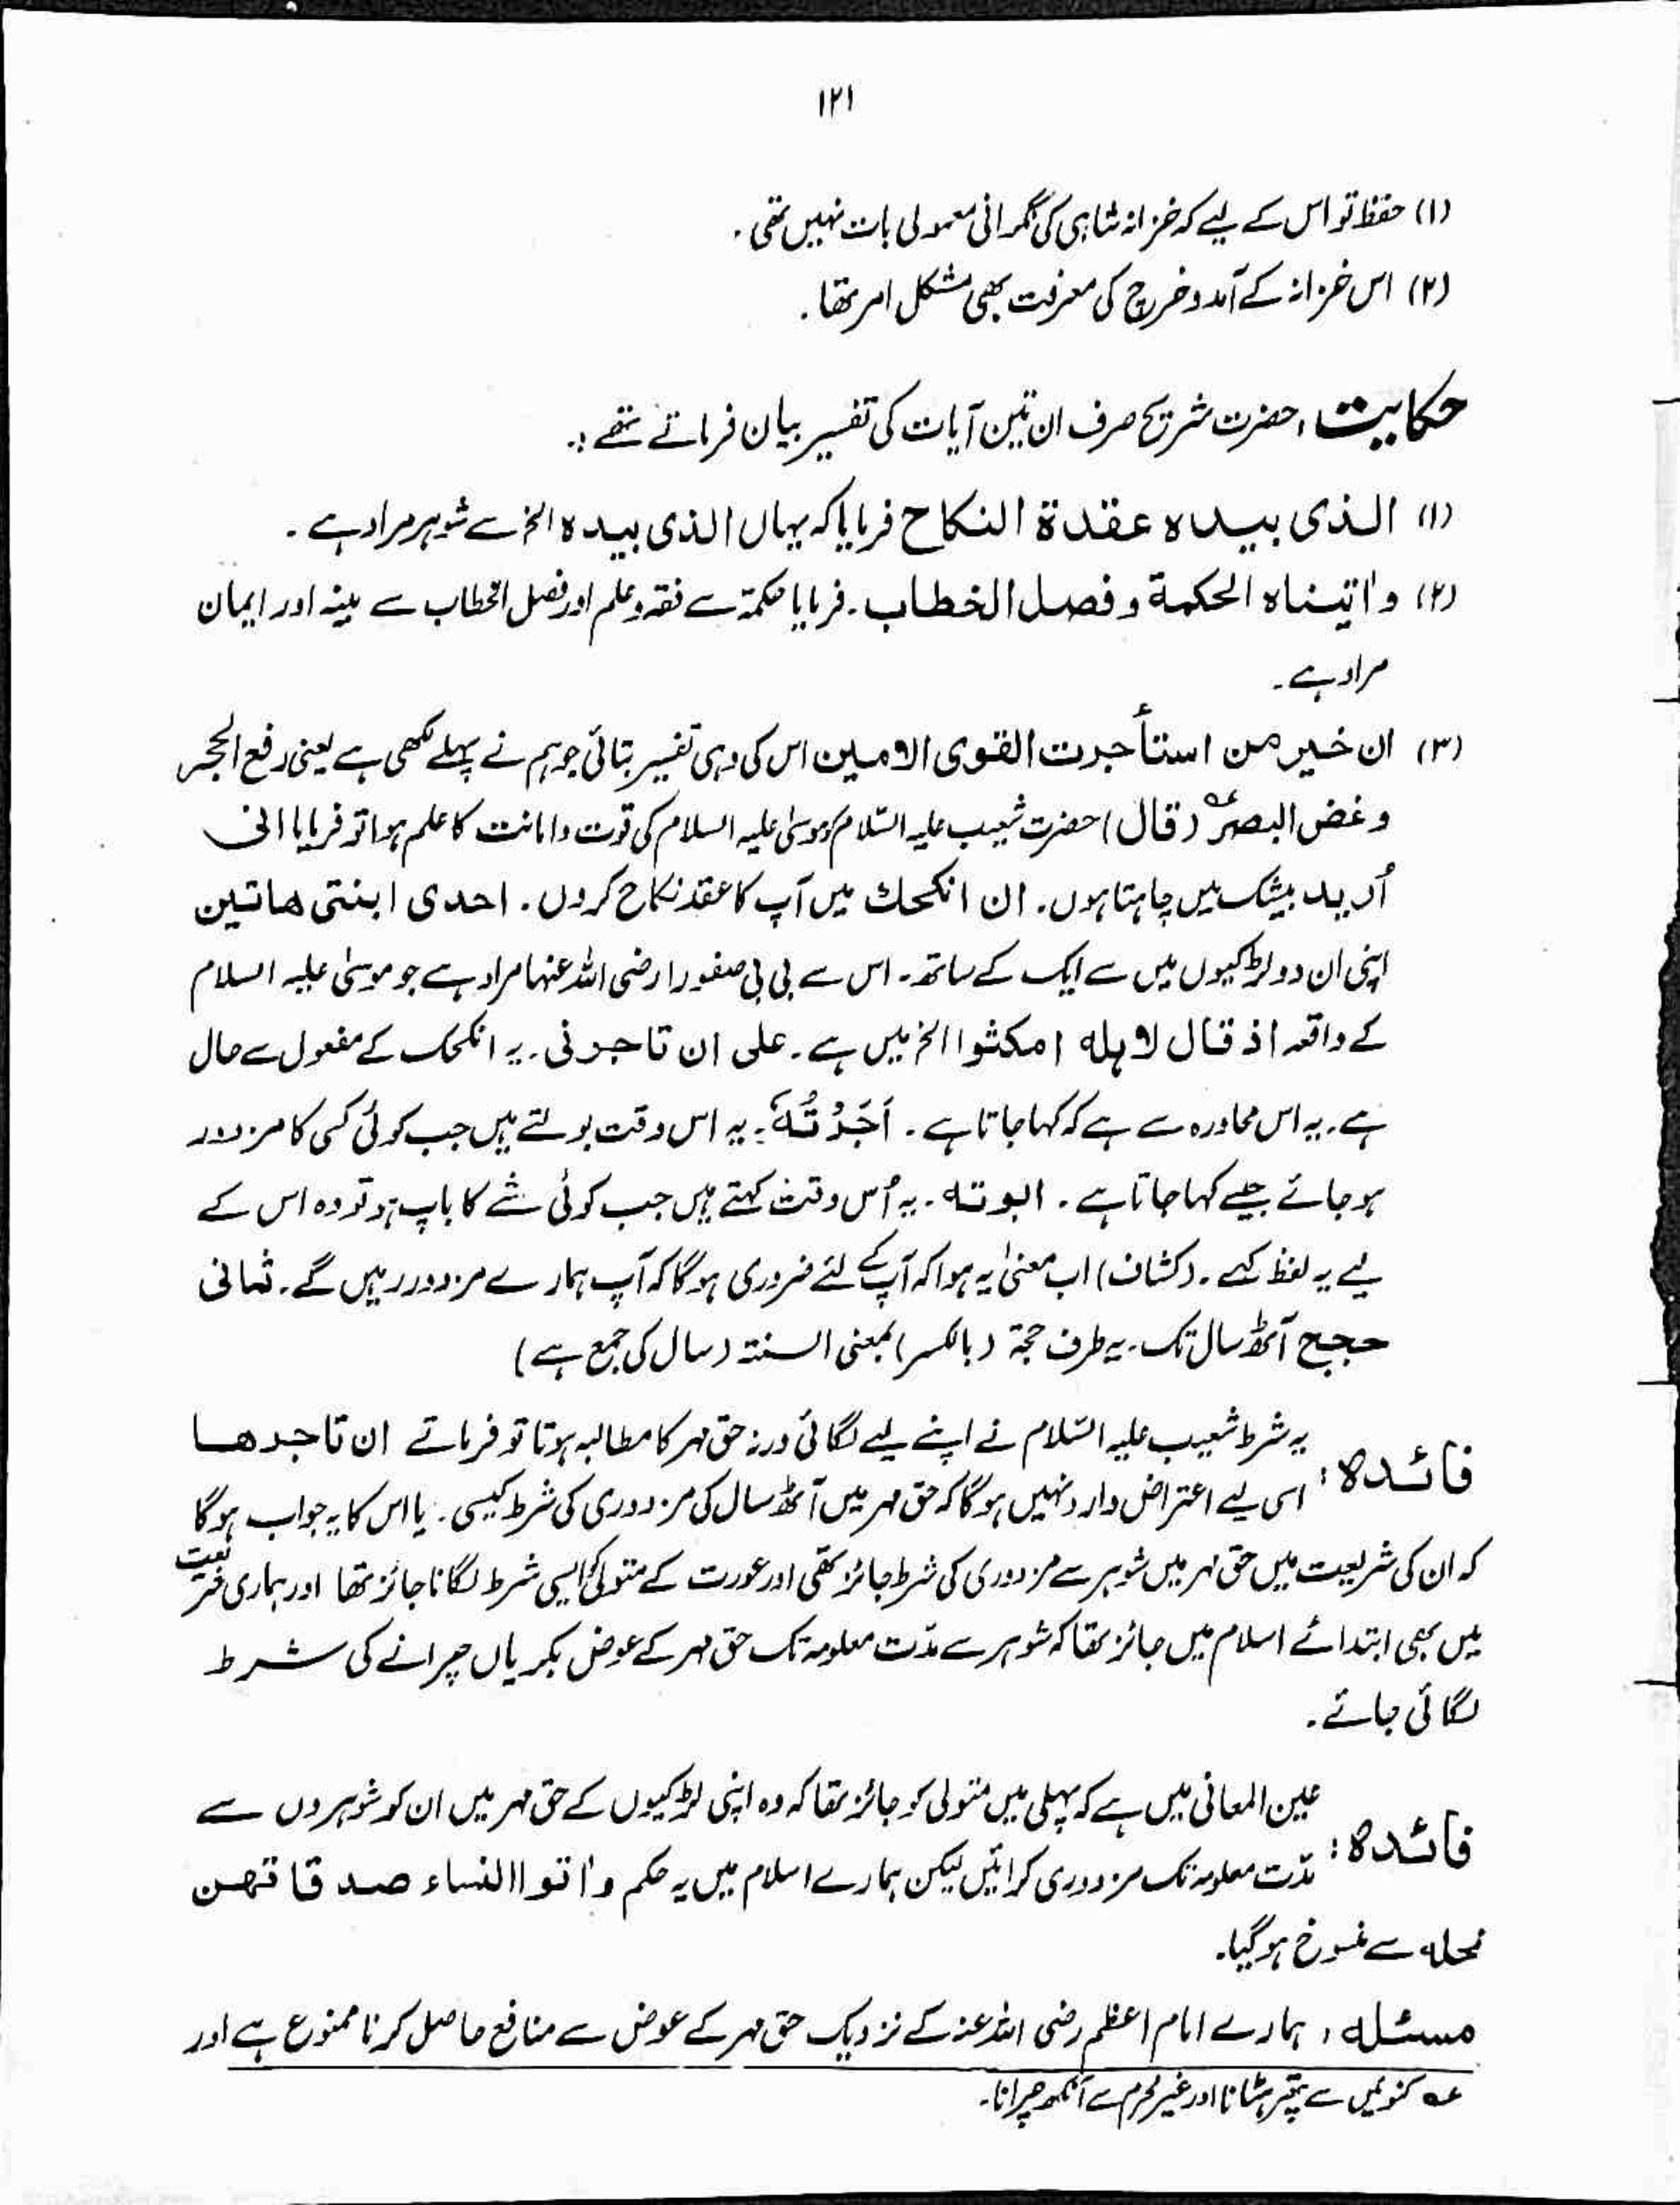 ۱۲۱
(۱) حفظ تو اس کے لیے کہ خزانہ شاہی کی نگرانی معمولی بات نہیں تھی.
(۲) اس خزانہ کے آمد و خرچ کی معرفت بھی مشکل امر تھا.
حکایت ، حضرت شریح صرف ان تین آیات کی تفسیر بیان فرماتے تھے :.
(۱) الذی بیدہ عقدة النکاح فرمایا کہ یہاں الذی بیدہ الخ سے شوہر مراد ہے.
(۲) واٰتیناہ الحکمة و فصل الخطاب. فرمایا حکمۃ سے فقہ و علم اور فصل الخطاب سے بینہ اور ایمان
مراد ہے.
(۳) ان خیر من استأجرت القوی الامین اس کی وہی تفسیر بتائی جو ہم نے پہلے لکھی ہے یعنی رفع الحجر
و غض البصر عہ (قال) حضرت شعیب علیہ السّلام کو موسیٰ علیہ السلام کی قوت و امانت کا علم ہوا تو فرمایا انی
اُرید بیشک میں چاہتا ہوں. ان انکحک میں آپ کا عقد نکاح کروں. احدی ابنتی ھاتین
اپنی ان دو لڑکیوں میں سے ایک کے ساتھ. اس سے بی بی صفورا رضی اللہ عنہا مراد ہے جو موسیٰ علیہ السلام
کے واقعہ اذ قال لاہلہ امکثوا الخ میں ہے. علی ان تاجرنی. یہ انکحک کے مفعول سے حال
ہے. یہ اس محاورہ سے ہے کہ کہا جاتا ہے. اَجَرْتُہٗ. یہ اس وقت بولتے ہیں جب کوئی کسی کا مزدور
ہو جائے جیسے کہا جاتا ہے. ابوتہ. یہ اُس وقت کہتے ہیں جب کوئی شے کا باپ ہو تو وہ اس کے
لیے یہ لفظ کہے. (کشاف) اب معنیٰ یہ ہوا کہ آپ کے لئے ضروری ہو گا کہ آپ ہمارے مزدور رہیں گے. ثمانی
حجج آٹھ سال تک. یہ ظرف حجۃ (بالکسر) بمعنی السنۃ (سال کی جمع ہے)
یہ شرط شعیب علیہ السّلام نے اپنے لیے لگائی ورنہ حق مہر کا مطالبہ ہوتا تو فرماتے ان تاجرھا
فائدہ : اسی لیے اعتراض وارد نہیں ہو گا کہ حق مہر میں آٹھ سال کی مزدوری کی شرط کیسی. یا اس کا یہ جواب ہو گا
کہ ان کی شریعت میں حق مہر میں شوہر سے مزدوری کی شرط جائز تھی اور عورت کے متولی کو ایسی شرط لگانا جائز تھا اور ہماری شریعت
میں بھی ابتدائے اسلام میں جائز تھا کہ شوہر سے مدّت معلومہ تک حق مہر کے عوض بکریاں چرانے کی شرط
لگائی جائے.
عین المعانی میں ہے کہ پہلی میں متولی کو جائز تھا کہ وہ اپنی لڑکیوں کے حق مہر میں ان کو شوہروں سے
فائدہ : مدّت معلومہ تک مزدوری کرائیں لیکن ہمارے اسلام میں یہ حکم واٰتوا النساء صدقاتھن
نحلہ سے منسوخ ہو گیا.
مسئلہ ، ہمارے امام اعظم رضی اللہ عنہ کے نزدیک حق مہر کے عوض سے منافع حاصل کرنا ممنوع ہے اور
عہ کنویں سے پتھر ہٹانا اور غیر محرم سے آنکھ چرانا.